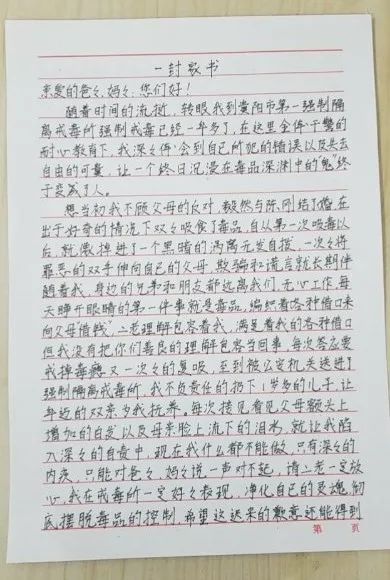 一封家书
亲爱的爸爸、妈妈、您们好！
随着时间的流逝，转眼我到贵阳市第一强制隔
离戒毒所强制戒毒已经一年多了，在这里全体干警的
耐心教育下，我深深体会到自己所犯的错误以及失去
自由的可量，让一个终日沉浸在毒品深渊中的鬼终
于变成了人。
想当初我不顾父母的反对，毅然与陈刚结了婚在
出于好奇的情况下双双吸食了毒品，自从第一次吸毒以
后，就像掉进了一个黑暗的涡离无发自拔，一次次将
罪恶的双手伸向自己的父母，欺骗和谎言就长期伴
随着我，身边的兄弟和朋友都远离我们，无心工作，每
天睁开眼睛的第一件事就是毒品，编织着各种借口来
向父母借钱，二老理解包容着我，满足着我的各种借口
但我没有把你们善良的理解包容当回事，每次答应要
戒掉毒瘾又一次次的复吸，至到被公安机关送进了
强制隔离戒毒所，我不负责任的扔下1岁多的儿子，让
年迈的双亲为我抚养，每次接见看见父母额头上
增加的白发以及母亲脸上流下的泪水，就让我陷
入深深的自责中，现在我什么都不能做，只有深深的
内疚，只能对爸爸、妈妈说一声对不起，请二老一定放
心，我在戒毒所一定好好表现，净化自己的灵魂，彻
底摆脱毒品的控制，希望这迟来的歉意还能得到
第 页